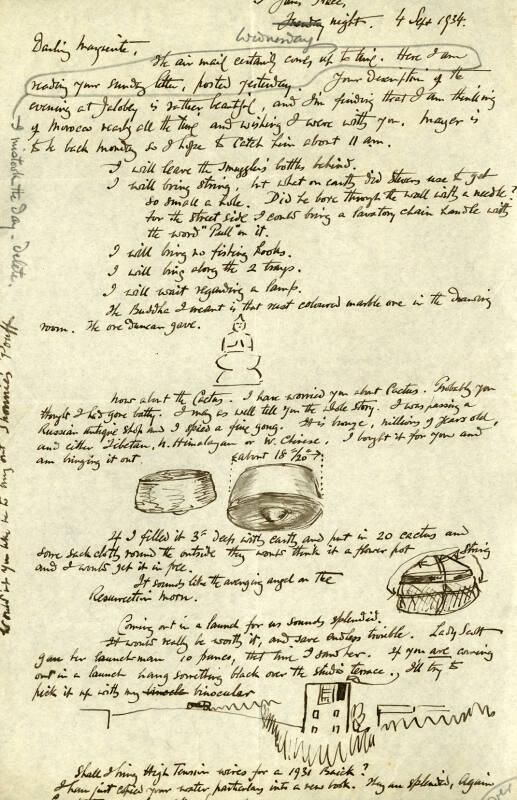 night. 4 Sept 1934.
Wednesday
Darling Marguerite,
The air mail certainly comes up to time. Here I am
reading your Sunday letter, posted yesterday. Your description of the
evening at Jalobey is rather beautiful, and I'm finding that I am thinking
of Morocco nearly all the time and wishing I were with you. Mayer is
to be back Monday so I hope to catch him about 11 am.
I will leave the smugglers bottles behind.
I will bring string, but what on earth did Stevens use to get
so small a hole. Did he bore through the wall with a needle?
For the street side I could bring a lavatory chain handle with
the word "Pull" on it.
I will bring no fishing hooks.
I will bring along the 2 trays.
I will wait regarding a lamp.
The Buddha I meant is that rust coloured marble one in the drawing
room. The one Duncan gave.
Now about the Cactus. I have worried you about Cactus. Probably you
thought I had gone batty. I may as well tell you the whole story. I was passing a
Russian antique shop and I spied a fine gong. It is bronze, millions of years old,
and either Tibetan, N. Himalayan or W. Chinese. I bought it for you and
am bringing it out
about 18"/20"
If I filled it 3" deep with earth and put in 20 cactus and
some sack cloth round the outside they would think it a flower pot
and I would get it in free.
String
It sounds like the avenging angel on the
Resurrection morn.
Coming out in a launch for us sounds splendid.
It would really be worth it, and save endless trouble. Lady Scott
gave her launchman 10 francs, that time I saw her. If you are coming
out in a launch hang something black over the studio terrace, I'll try to
pick it up with my binocular
Shall I bring High Tension wires for a 1931 Buick?
I have just copied your water particulars into a new book. They are splendid, Again
I mistook the day - delete.